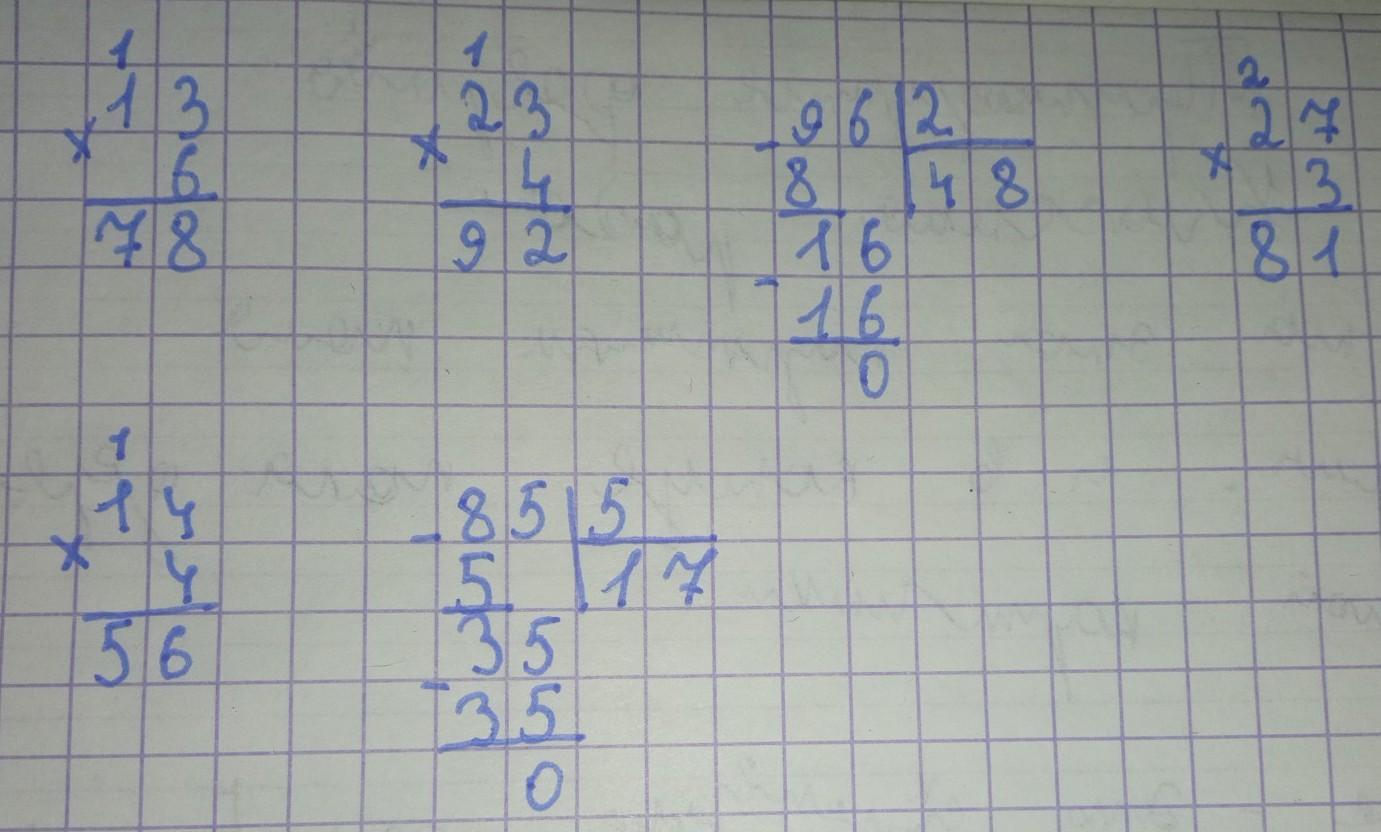 1
13
× 6
78
1
23
× 4
92
- 96 | 2
8 | 48
16
- 16
0
2
27
× 3
81
1
14
× 4
56
- 85 | 5
5 | 17
35
- 35
0